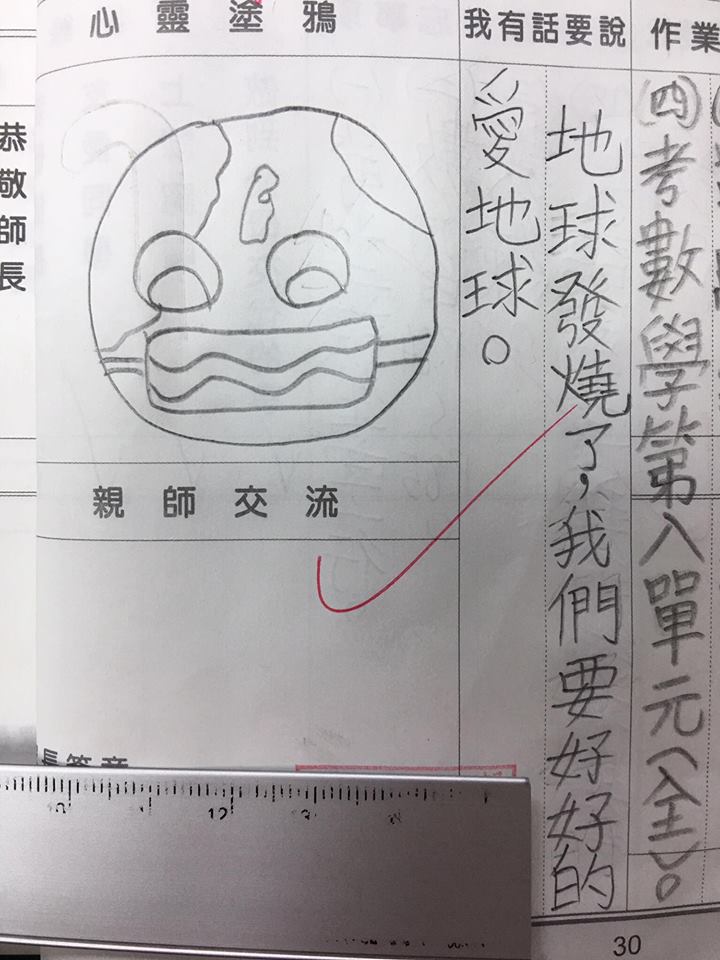 作業
(四)考數學第八單元(全)。
我有話要說
地球發燒了,我們要好好的
愛地球。
心靈塗鴉
親師交流
恭敬師長
30